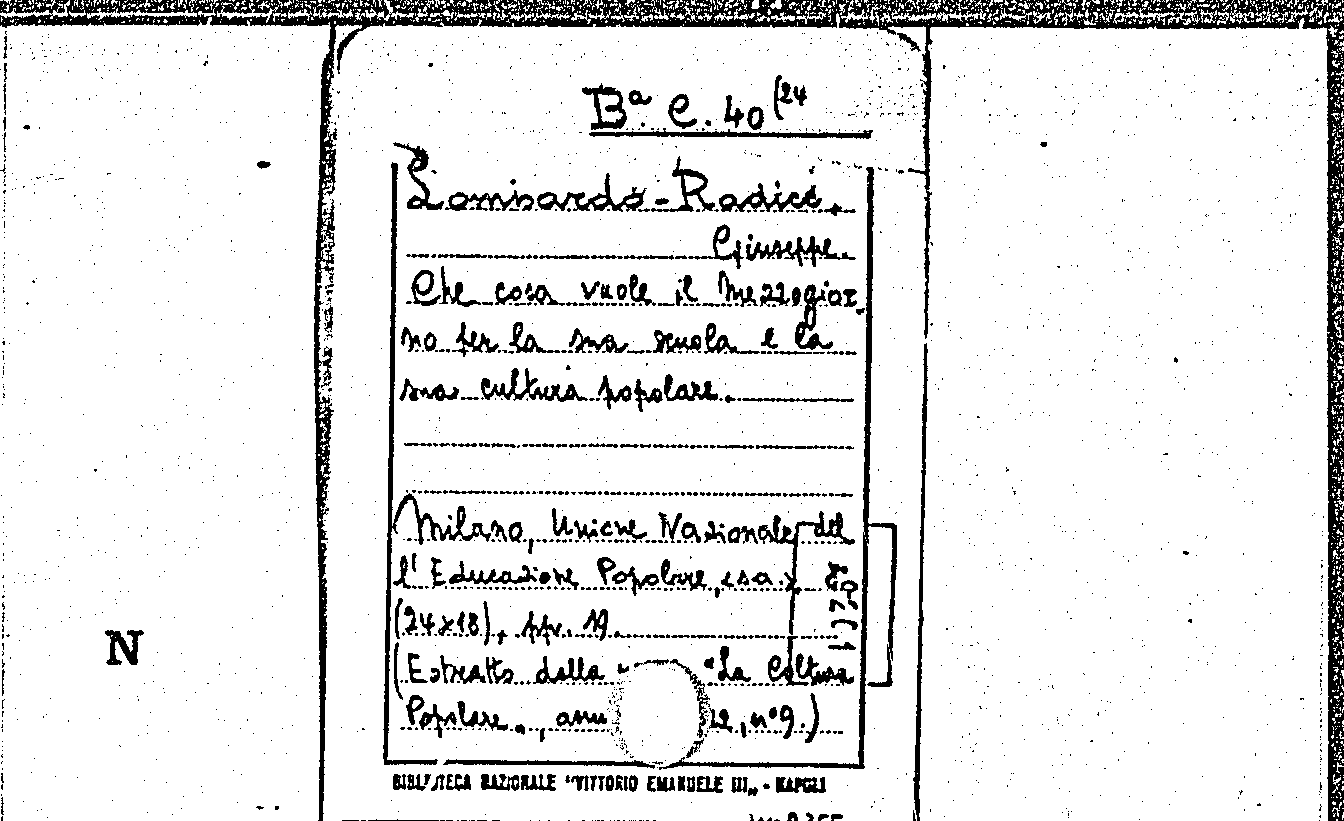 Bª. C. 40 (24
Lombardo-Radice.
Giuseppe.
Che cosa vuole il Mezzogior-
no per la sua scuola e la
sua cultura popolare.
Milano, Unione Nazionale del
l'Educazione Popolare, s.a.
(24x18), pp. 19.
(Estratto dalla "La Coltura
Popolare", n° 9.)
N
BIBLIOTECA NAZIONALE "VITTORIO EMANUELE III" - NAPOLI